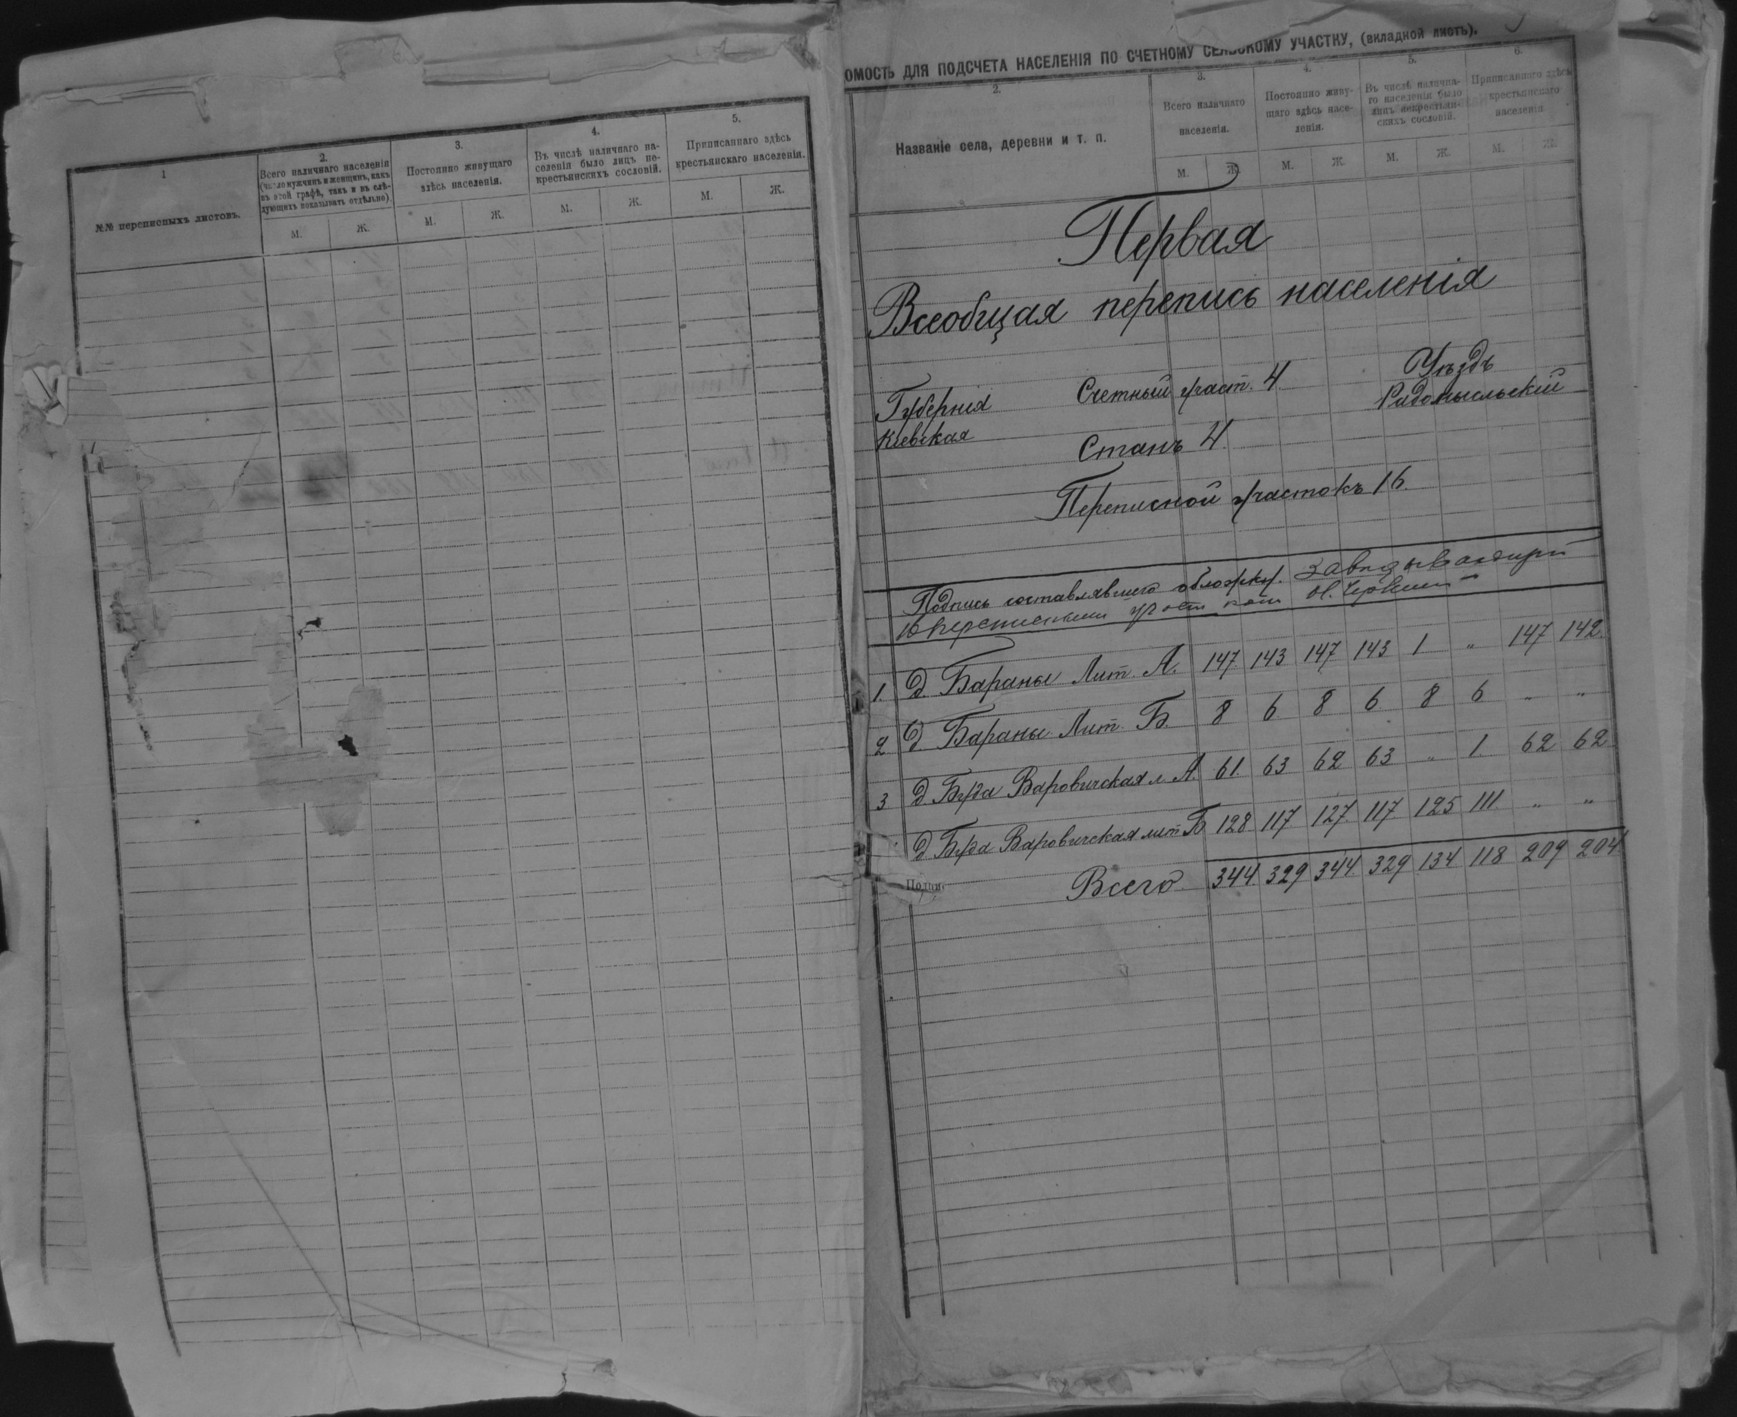 1
№№ переписныхъ листовъ.
2.
Всего наличнаго населенія
(число мужчинъ и женщинъ, какъ
въ этой графѣ, такъ и въ слѣ-
дующихъ показывать отдѣльно).
М. Ж.
3.
Постоянно живущаго
здѣсь населенія.
М. Ж.
4.
Въ числѣ наличнаго на-
селенія было лицъ не-
крестьянскихъ сословій.
М. Ж.
5.
Приписаннаго здѣсь
крестьянскаго населенія.
М. Ж.
ОМОСТЬ ДЛЯ ПОДСЧЕТА НАСЕЛЕНІЯ ПО СЧЕТНОМУ СЕЛЬСКОМУ УЧАСТКУ, (вкладной листъ).
2.
Названіе села, деревни и т. п.
3.
Всего наличнаго
населенія.
М. Ж.
4.
Постоянно живу-
щаго здѣсь насе-
ленія.
М. Ж.
5.
Въ числѣ налична-
го населенія было
лицъ некрестьян-
скихъ сословій.
М. Ж.
6.
Приписаннаго здѣсь
крестьянскаго
населенія
М. Ж.
Первая
Всеобщая перепись населенія
Губернія
Кіевская
Счетный участ. 4
Уѣздъ
Радомысльскій
Станъ 4
Переписной участокъ 16.
Подпись составлявшего обложку. Завѣдывающій
16 переписнымъ участкомъ
1. д. Бараны Лит. А. 147 143 147 143 1 „ 147 142
2 д. Бараны Лит. Б. 8 6 8 6 8 6 „ „
3 д. Буда Варовичская л. А. 61 63 62 63 „ 1 62 62
д. Буда Варовичская лит Б 128 117 127 117 125 111 „ „
Всего 344 329 344 329 134 118 209 204